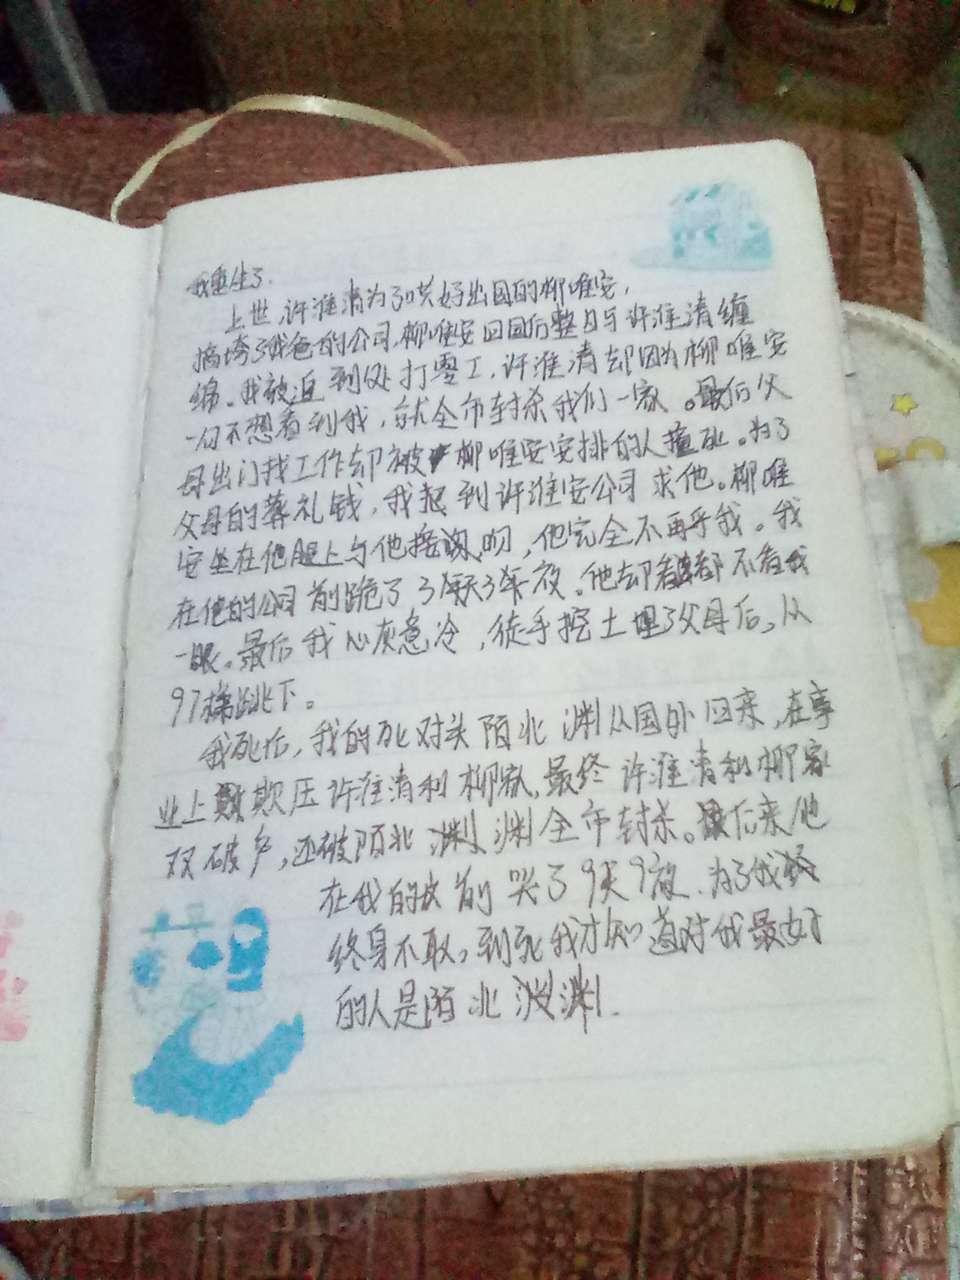 我重生了.
上世,许淮清为了哄好出国的柳唯安,
搞垮了我爸的公司,柳唯安回国后整日与许淮清缠
绵。我被迫到处打零工,许淮清却因为柳唯安
一句不想看到我,就全市封杀我们一家。最后父
母出门找工作却被柳唯安安排的人撞死。为了
父母的葬礼钱,我想到许淮安公司求他。柳唯
安坐在他腿上与他接吻,他完全不再乎我。我
在他的公司前跪了3天3夜。他却看都不看我
一眼。最后我心灰意冷,徒手挖土埋了父母后,从
97梯跳下。
我死后,我的死对头陌北渊从国外回来,在事
业上欺压许淮清和柳家,最终许淮清和柳家
双破产,还被陌北渊全市封杀。最后来他
在我的坟前哭了9天9夜.为了我
终身不取。到死我才知道对我最好
的人是陌北渊.